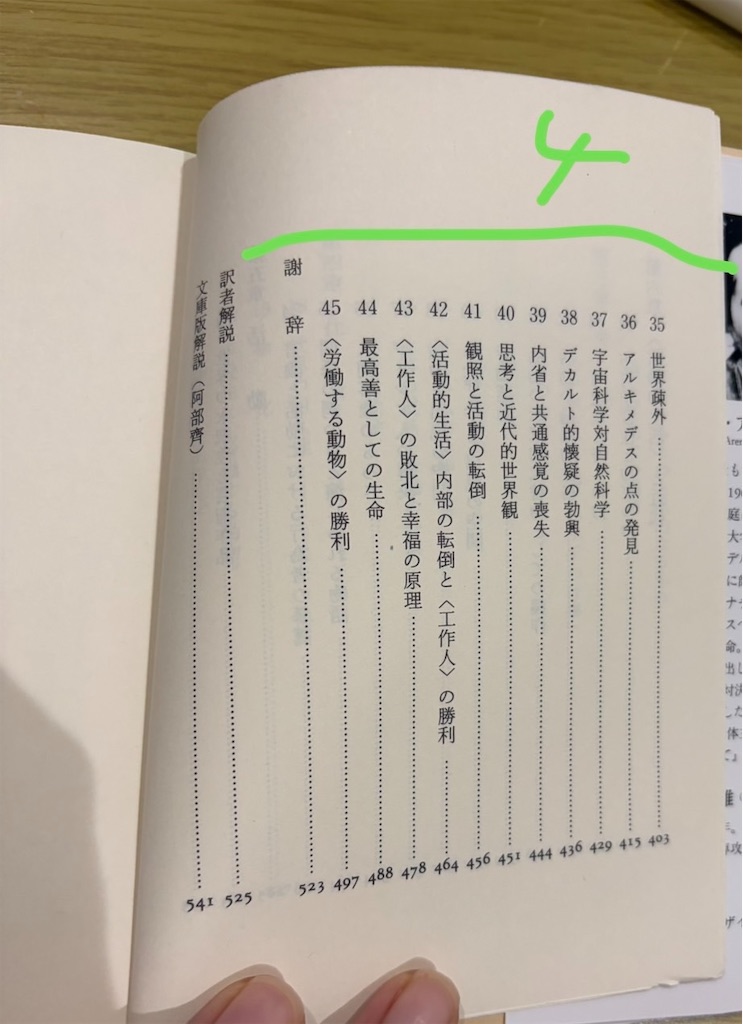 4
35 世界疎外 403
36 アルキメデスの点の発見 415
37 宇宙科学対自然科学 429
38 デカルト的懐疑の勃興 436
39 内省と共通感覚の喪失 444
40 思考と近代的世界観 451
41 観照と活動の転倒 456
42 〈活動的生活〉内部の転倒と〈工作人〉の勝利 464
43 〈工作人〉の敗北と幸福の原理 478
44 最高善としての生命 488
45 〈労働する動物〉の勝利 497
謝辞 523
訳者解説 525
文庫版解説(阿部齊) 541